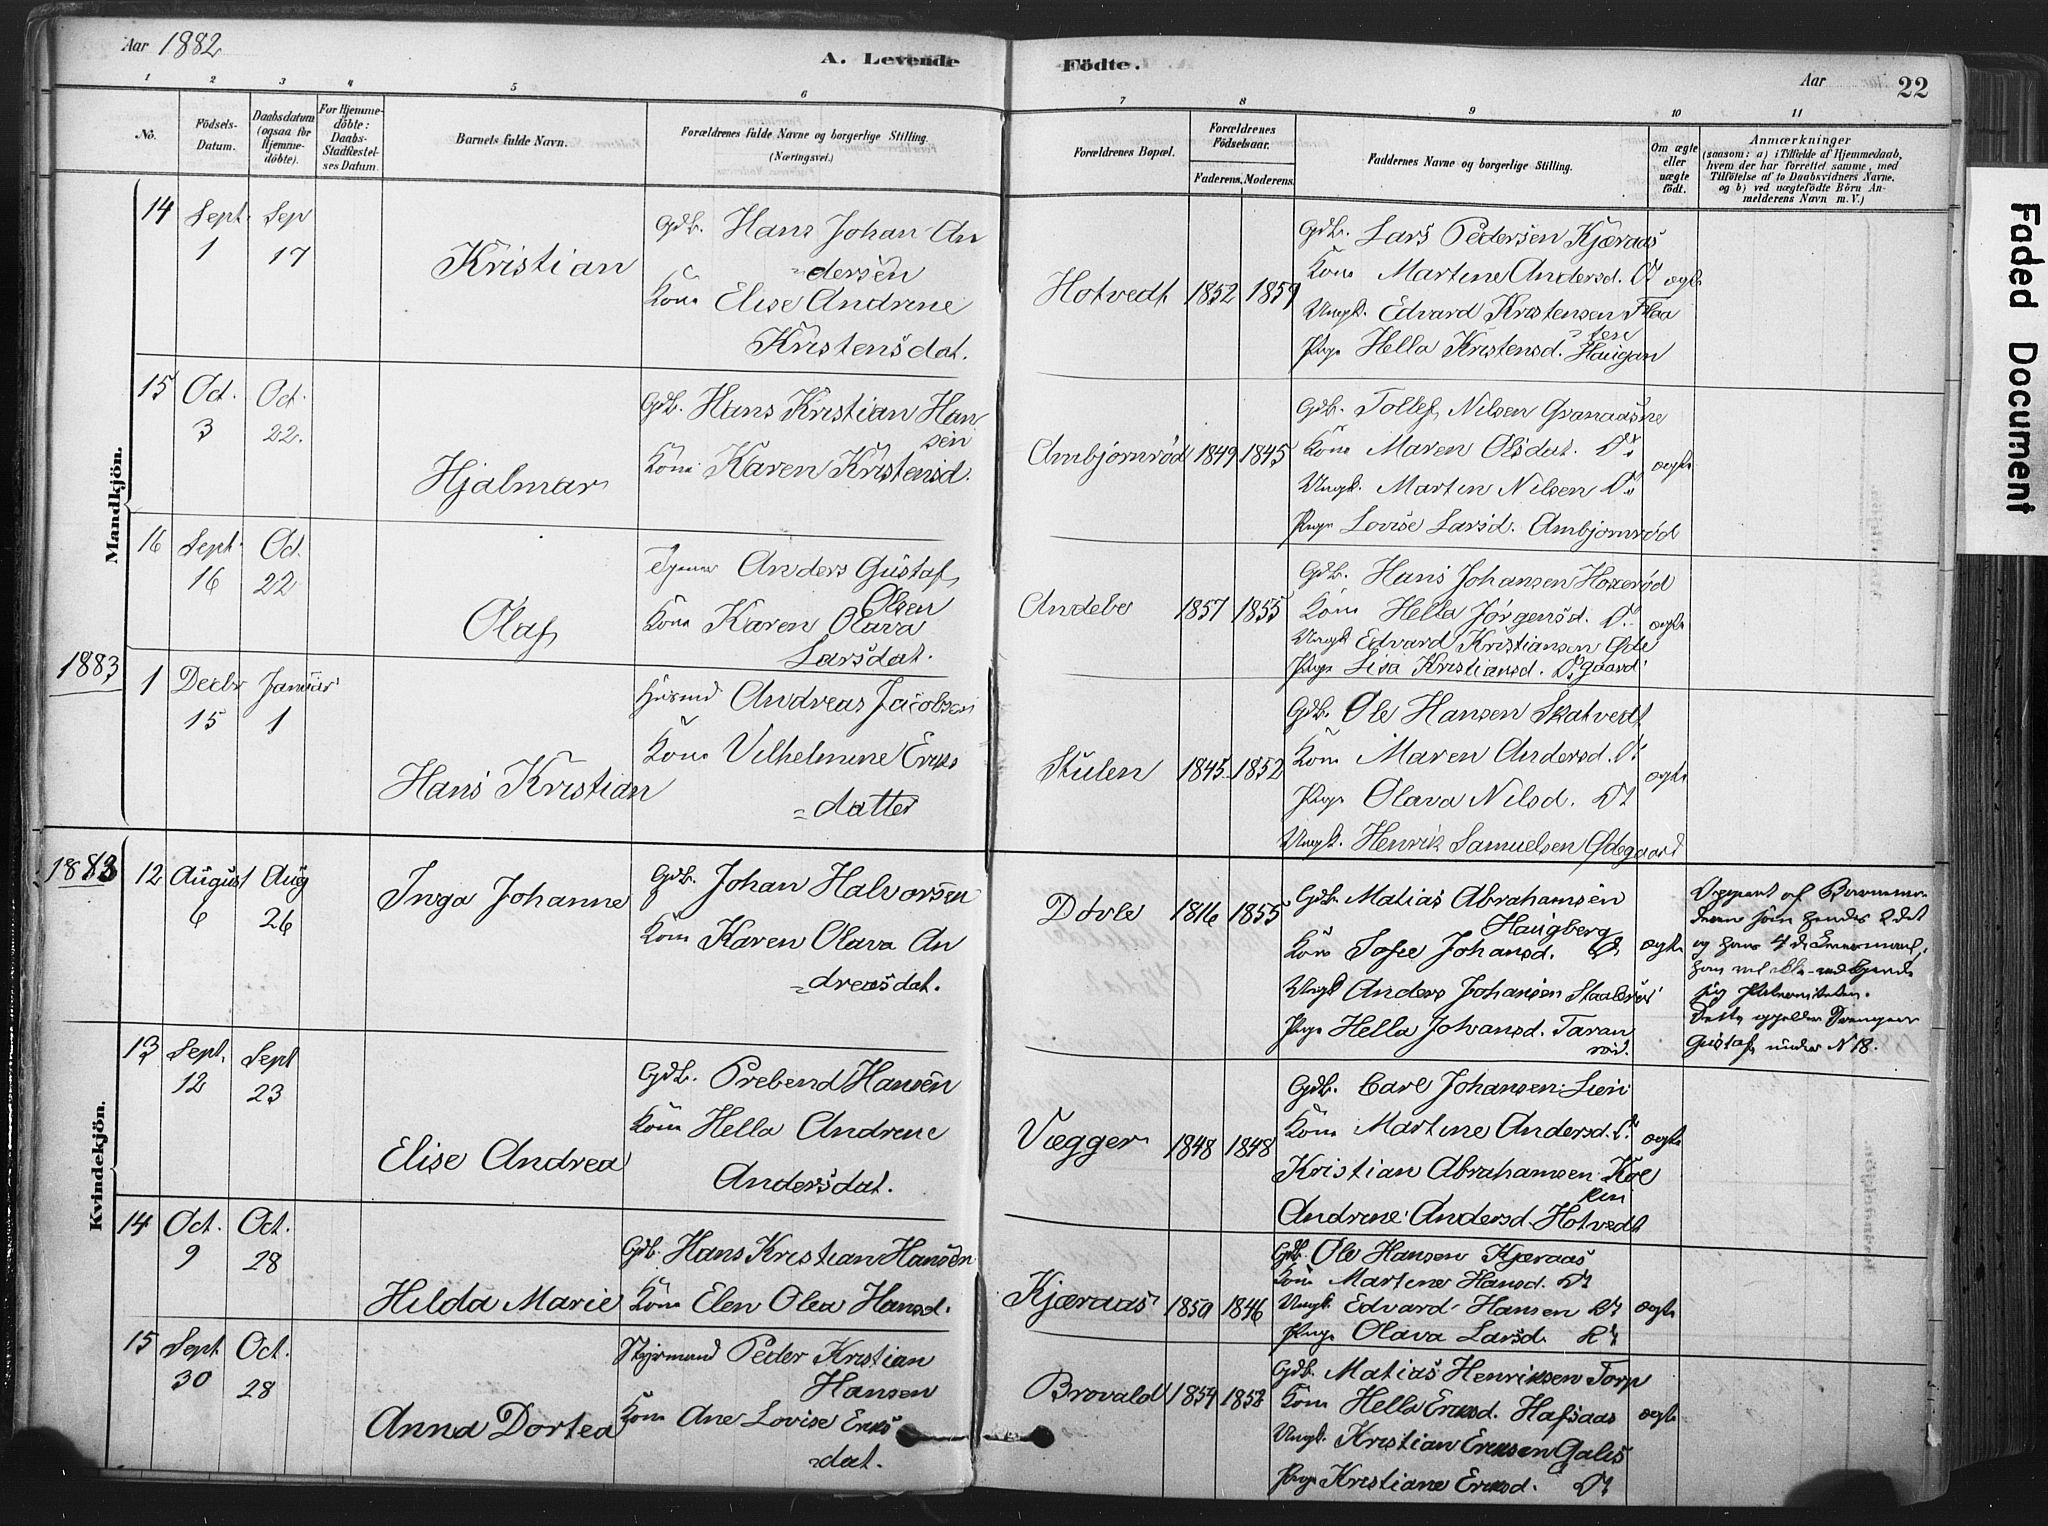 Aar 1882
A. Levende Födte.
Aar 22
1 2 3 4 5 6 7 8 9 10 11
No.
Födsels-Datum.
Daabsdatum (ogsaa for Hjemme-döbte).
For Hjemme-döbte: Daabs-Stadfæstel-ses Datum.
Barnets fulde Navn.
Forældrenes fulde Navne og borgerlige Stilling.
(Næringsvei.)
Forældrenes Bopæl.
Forældrenes Födselsaar.
Faderens. Moderens.
Faddernes Navne og borgerlige Stilling.
Om ægte eller uægte födt.
Anmærkninger
(saasom: a) i Tilfælde af Hjemmedaab,
hvem der har forrettet samme, med
Tilföielse af to Daabsvidners Navne.
og b) ved uægtefödte Börn An-
melderens Navn m. V.)
Faded Document
Mandkjön.
14 Sept. 1 Sep 17
Kristian
Gdb. Hans Johan An
dersen
Kone Elise Andrine
Kristensdat.
Hotvedt 1852 1859
Gdb. Lars Pedersen Kjæraas
Kone Martine Andersd. Do
Ungk. Edvard Kristensen Flaa
tese
Pige Hella Kristensd. Haugan
ægte
15 Oct. 3 Oct. 22.
Hjalmar
Gdb. Hans Kristian Han
sen
Kone Karen Kristensd.
Ambjørnrød 1849 1845
Gdb. Tollef Nilsen Granaasne
Kone Maren Olsdat. Do
Ungk. Martin Nilsen Do
Pige Lovise Larsd. Ambjørnrød
ægte
16 Sept. 16 Oct. 22
Olaf
Tjener Anders Gustaf
Olsen
Kone Karen Olava
Larsdat.
Andebo 1857 1855
Gdb. Hans Johansen Hoxerød
Kone Hella Jørgensd. Do
Ungk Edvard Kristiansen Øde
Pige Lisa Kristiansd. Do gaard
ægte
1883
1 Decbr 15 Januar 1
Hans Kristian
Husmd Andreas Jacobsen
Kone Vilhelmine Eriks
datter
Stulen 1845 1852
Gdb. Ole Hansen Skatvedt
Kone Maren Andersd. Do
Pige Olava Nilsd. Do
Ungk. Henrik Samuelsen Ødegaard
ægte
Kvindekjön.
1883
12 August 6 Aug 26
Inga Johanne
Gdb. Johan Halvorsen
Kone Karen Olava An
dreasdat.
Døvle 1816 1855
Gdb. Matias Abrahamsen
Haugberg
Kone Sofie Johansd. Do
Ungk Anders Johansen
Pige Hella Johansd. Taran
rød.
ægte
Opgivet af Barnemo-
deren som hendes 2det
og hans 4de
han vil ikke vedkjende
sig Paterniteten.
Dette gjelder Drengen
Gustaf under N 18.
13 Sept. 12 Sept 23
Elise Andrea
Gdb. Prebend Hansen
Kone Hella Andrine
Andersdat.
Vægger 1848 1848
Gdb. Carl Johansen Lien
Kone Martine Andersd. Do
Kristian Abrahamsen Kol
kin
Andrine Andersd. Hotvedt
ægte
14 Oct. 9 Oct. 28
Hilda Marie
Gdb. Hans Kristian Hansen
Kone Elen Olea Hansd.
Kjæraas 1850 1846
Gdb. Ole Hansen Kjæraas
Kone Martine Hansd. Do
Ungk. Edvard Hansen Do
Pige Olava Larsd. Do
ægte
15 Sept 30 Oct. 28
Anna Dortea
Styrmand Peder Kristian
Hansen
Kone Ane Lovise Eriks
dat.
Brovald 1854 1858
Gdb. Matias Henriksen Torp
Kone Hella Eriksd. Hafsaas
Ungk. Kristian Eriksen Galis
Pige Kristiane Eriksd. Do
ægte